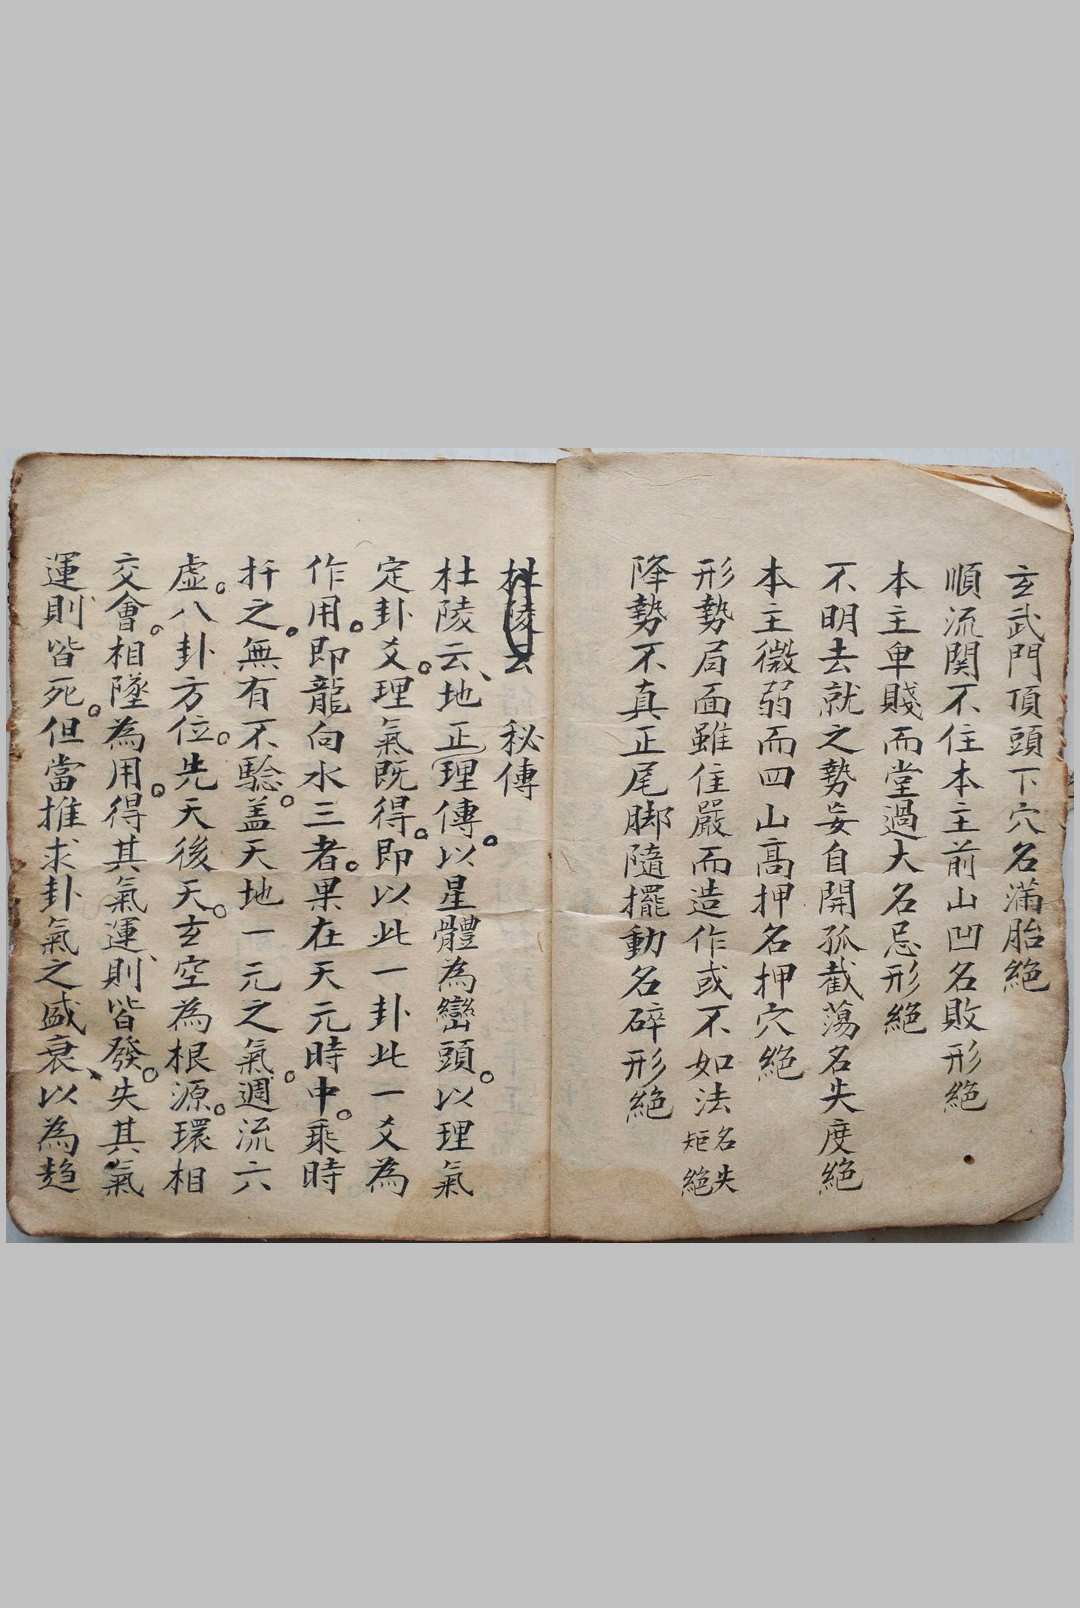 玄武門頂頭下穴名滿胎絕
順流関不住本主前山凹名敗形絕
本主卑賤而堂過大名忌形絕
不明去就之勢妄自開孤截蕩名失度絕
本主微弱而四山高押名押穴絕
形勢局面雖住嚴而造作或不如法名失矩絕
降勢不真正尾脚隨擺動名碎形絕
杜陵云 秘傳
杜陵云、地正理傳。以星體為巒頭。以理氣
定卦爻。理氣既得。即以此一卦此一爻為
作用。即龍向水三者。果在天元時中。乘時
扦之。無有不驗。盖天地一元之氣。週流六
虛。八卦方位。先天後天。玄空為根源。環相
交會。相墜為用。得其氣運、則皆發。失其氣
運則、皆死。但當推求卦氣之盛衰、以為趋